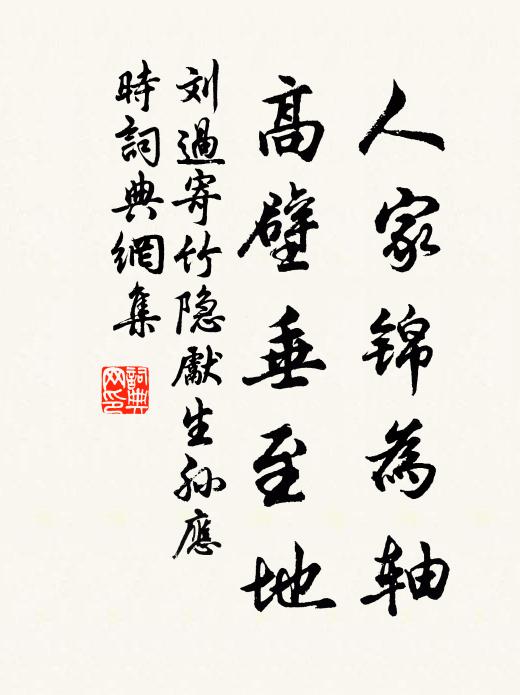 人家锦為轴
高壁垂至地
刘過寄竹隐獻生孙應
時詞典網集
詞典
网印